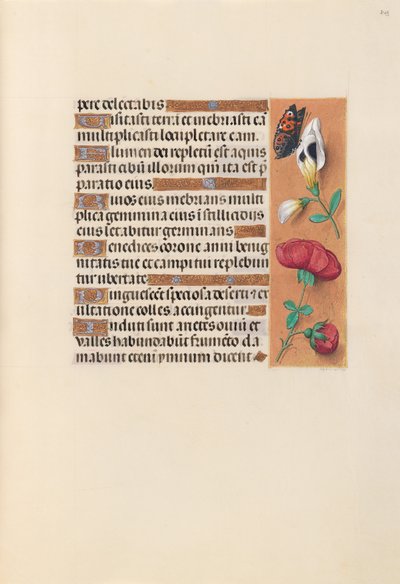 pere delectabis
Visitasti terrã et inebriasti eã
multiplicasti locupletare eam.
Flumen dei repletũ est aquis
parasti cibũ illorum qm̃ ita est p̃
paratio eius
Riuos eius inebrians multi
plica genimina eius ĩ stillicidijs
eius letabitur germinans
Benedices corone anni benig
nitatis tue et campi tui replebun
tur ubertate
Pinguescẽt speciosa deserti et ex
ultatione colles accingentur
Induti sunt arietes ouiũ et
valles habundabũt frumẽto cla
mabunt eteni ymnum dicent